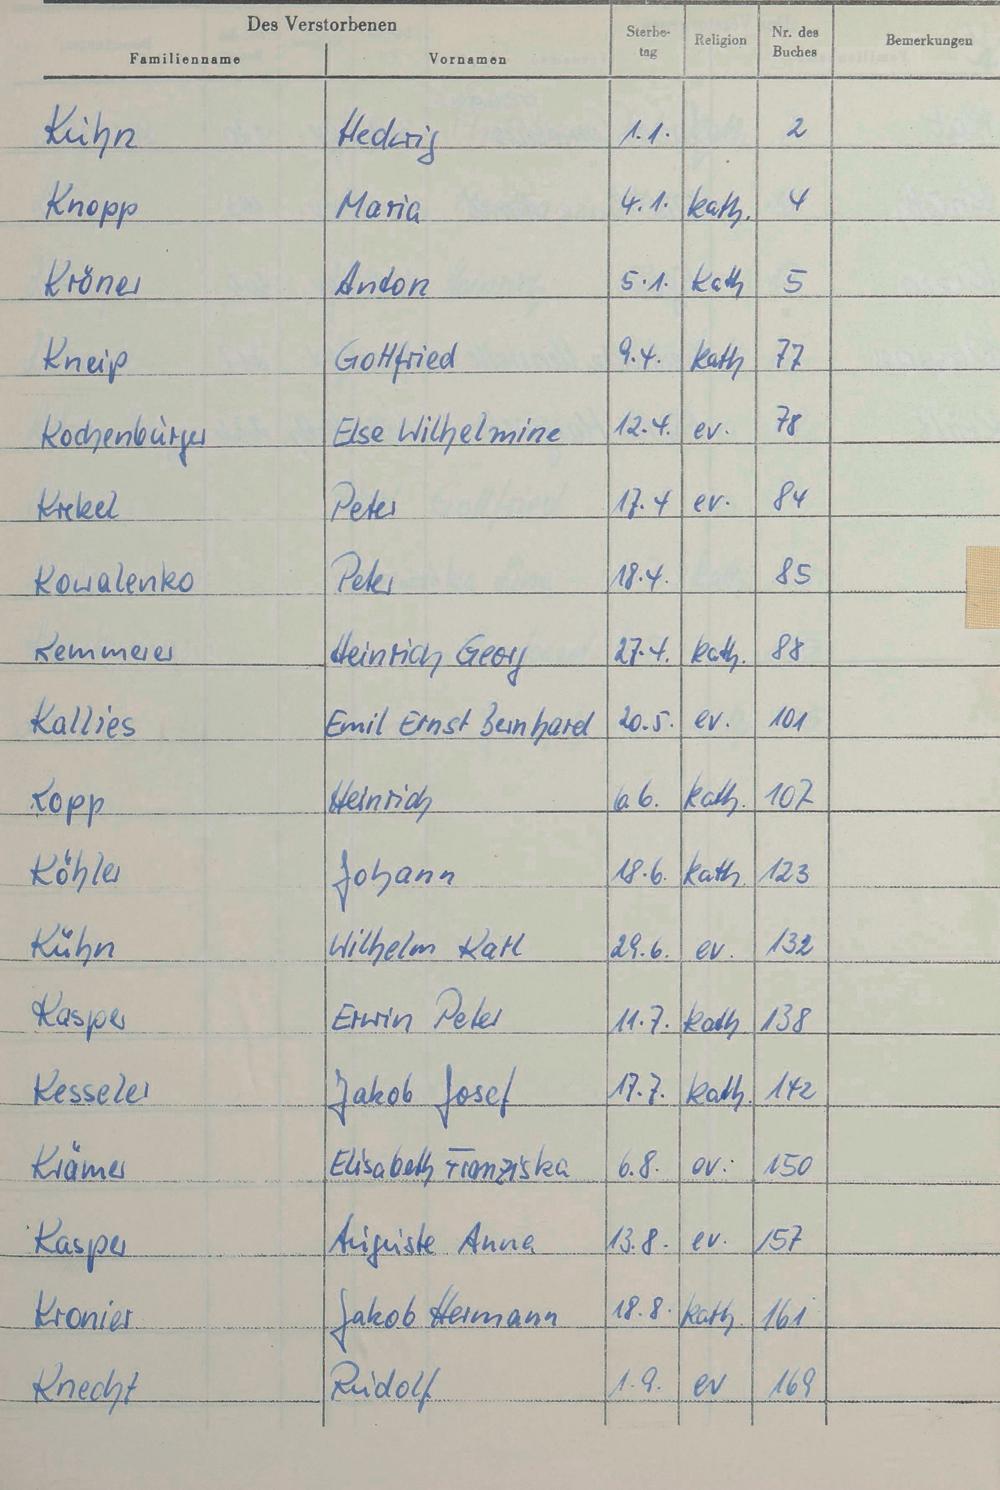 Des Verstorbenen
Familienname Vornamen Sterbe-tag Religion Nr. des Buches Bemerkungen
Kühn Hedwig 1.1. 2
Knopp Maria 4.1. kath. 4
Kröner Anton 5.1. kath 5
Kneip Gottfried 9.4. kath 77
Kochenburger Else Wilhelmine 12.4. ev. 78
Krekel Peter 17.4 ev. 84
Kowalenko Peter 18.4. 85
Kemmerer Heinrich Georg 27.4. kath. 88
Kallies Emil Ernst Bernhard 20.5. ev. 101
Kopp Heinrich 6.6. kath. 107
Köhler Johann 18.6. kath. 123
Kühn Wilhelm Karl 29.6. ev. 132
Kasper Erwin Peter 11.7. kath 138
Kesseler Jakob Josef 17.7. kath. 142
Krämer Elisabeth Franziska 6.8. ev. 150
Kasper Auguste Anna 13.8. ev. 157
Kronier Jakob Hermann 18.8. kath. 161
Knecht Rudolf 1.9. ev 169